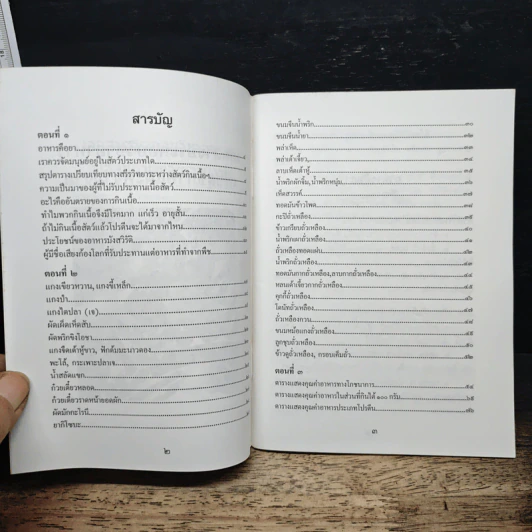 สารบัญ
ตอนที่ ๑
อาหารคือยา
เราควรจัดมนุษย์อยู่ในสัตว์ประเภทใด
สรุปตารางเปรียบเทียบทางสรีรวิทยาระหว่างสัตว์กินเนื้อฯ
ความเป็นมาของผู้ที่ไม่รับประทานเนื้อสัตว์
อะไรคืออันตรายของการกินเนื้อ
ทำไมพวกกินเนื้อจึงมีโรคมาก แก่เร็ว อายุสั้น
ถ้าไม่กินเนื้อสัตว์แล้วโปรตีนจะได้มาจากไหน
ประโยชน์ของอาหารมังสวิรัติ
ผู้มีชื่อเสียงก้องโลกที่รับประทานแต่อาหารที่ทำจากพืช
ตอนที่ ๒
แกงเขียวหวาน, แกงขี้เหล็ก
แกงป่า
แกงไตปลา (เจ)
ผัดเผ็ดเห็ดสับ
ผัดพริกขิงโอชา
แกงจืดเต้าหู้ขาว, ฟักต้มมะนาวดอง
พะโล้, กระเพาะปลาเจ
น้ำสลัดแขก
ก๋วยเตี๋ยวหลอด
ก๋วยเตี๋ยวราดหน้ายอดผัก
ผัดมักกะโรนี
ยากิโซบะ
๒
ขนมจีนน้ำพริก ๓๐
ขนมจีนน้ำยา
พล่าเห็ด
พล่าเต้าเจี้ยว
ลาบเห็ดเต้าหู้
น้ำพริกผักจิ้ม, น้ำพริกหนุ่ม
เห็ดสวรรค์
ทอดมันข้าวโพด
กะปิถั่วเหลือง
ข้าวเกรียบถั่วเหลือง
น้ำพริกเผาถั่วเหลือง
ถั่วเหลืองทอดแผ่น
น้ำพริกถั่วเหลือง
ทอดมันกากถั่วเหลือง, ลาบกากถั่วเหลือง
หลนเต้าเจี้ยวกากถั่วเหลือง
คุกกี้ถั่วเหลือง
โดนัทถั่วเหลือง
ถั่วเหลืองกวน
ขนมหม้อแกงถั่วเหลือง
ลูกชุบถั่วเหลือง
ข้าวตูถั่วเหลือง, กรอบเค็มถั่ว
ตอนที่ ๓
ตารางแสดงคุณค่าอาหารทางโภชนาการ
ตารางแสดงคุณค่าอาหารในส่วนที่กินได้ ๑๐๐ กรัม
ตารางแสดงคุณค่าอาหารประเภทโปรตีน
๓